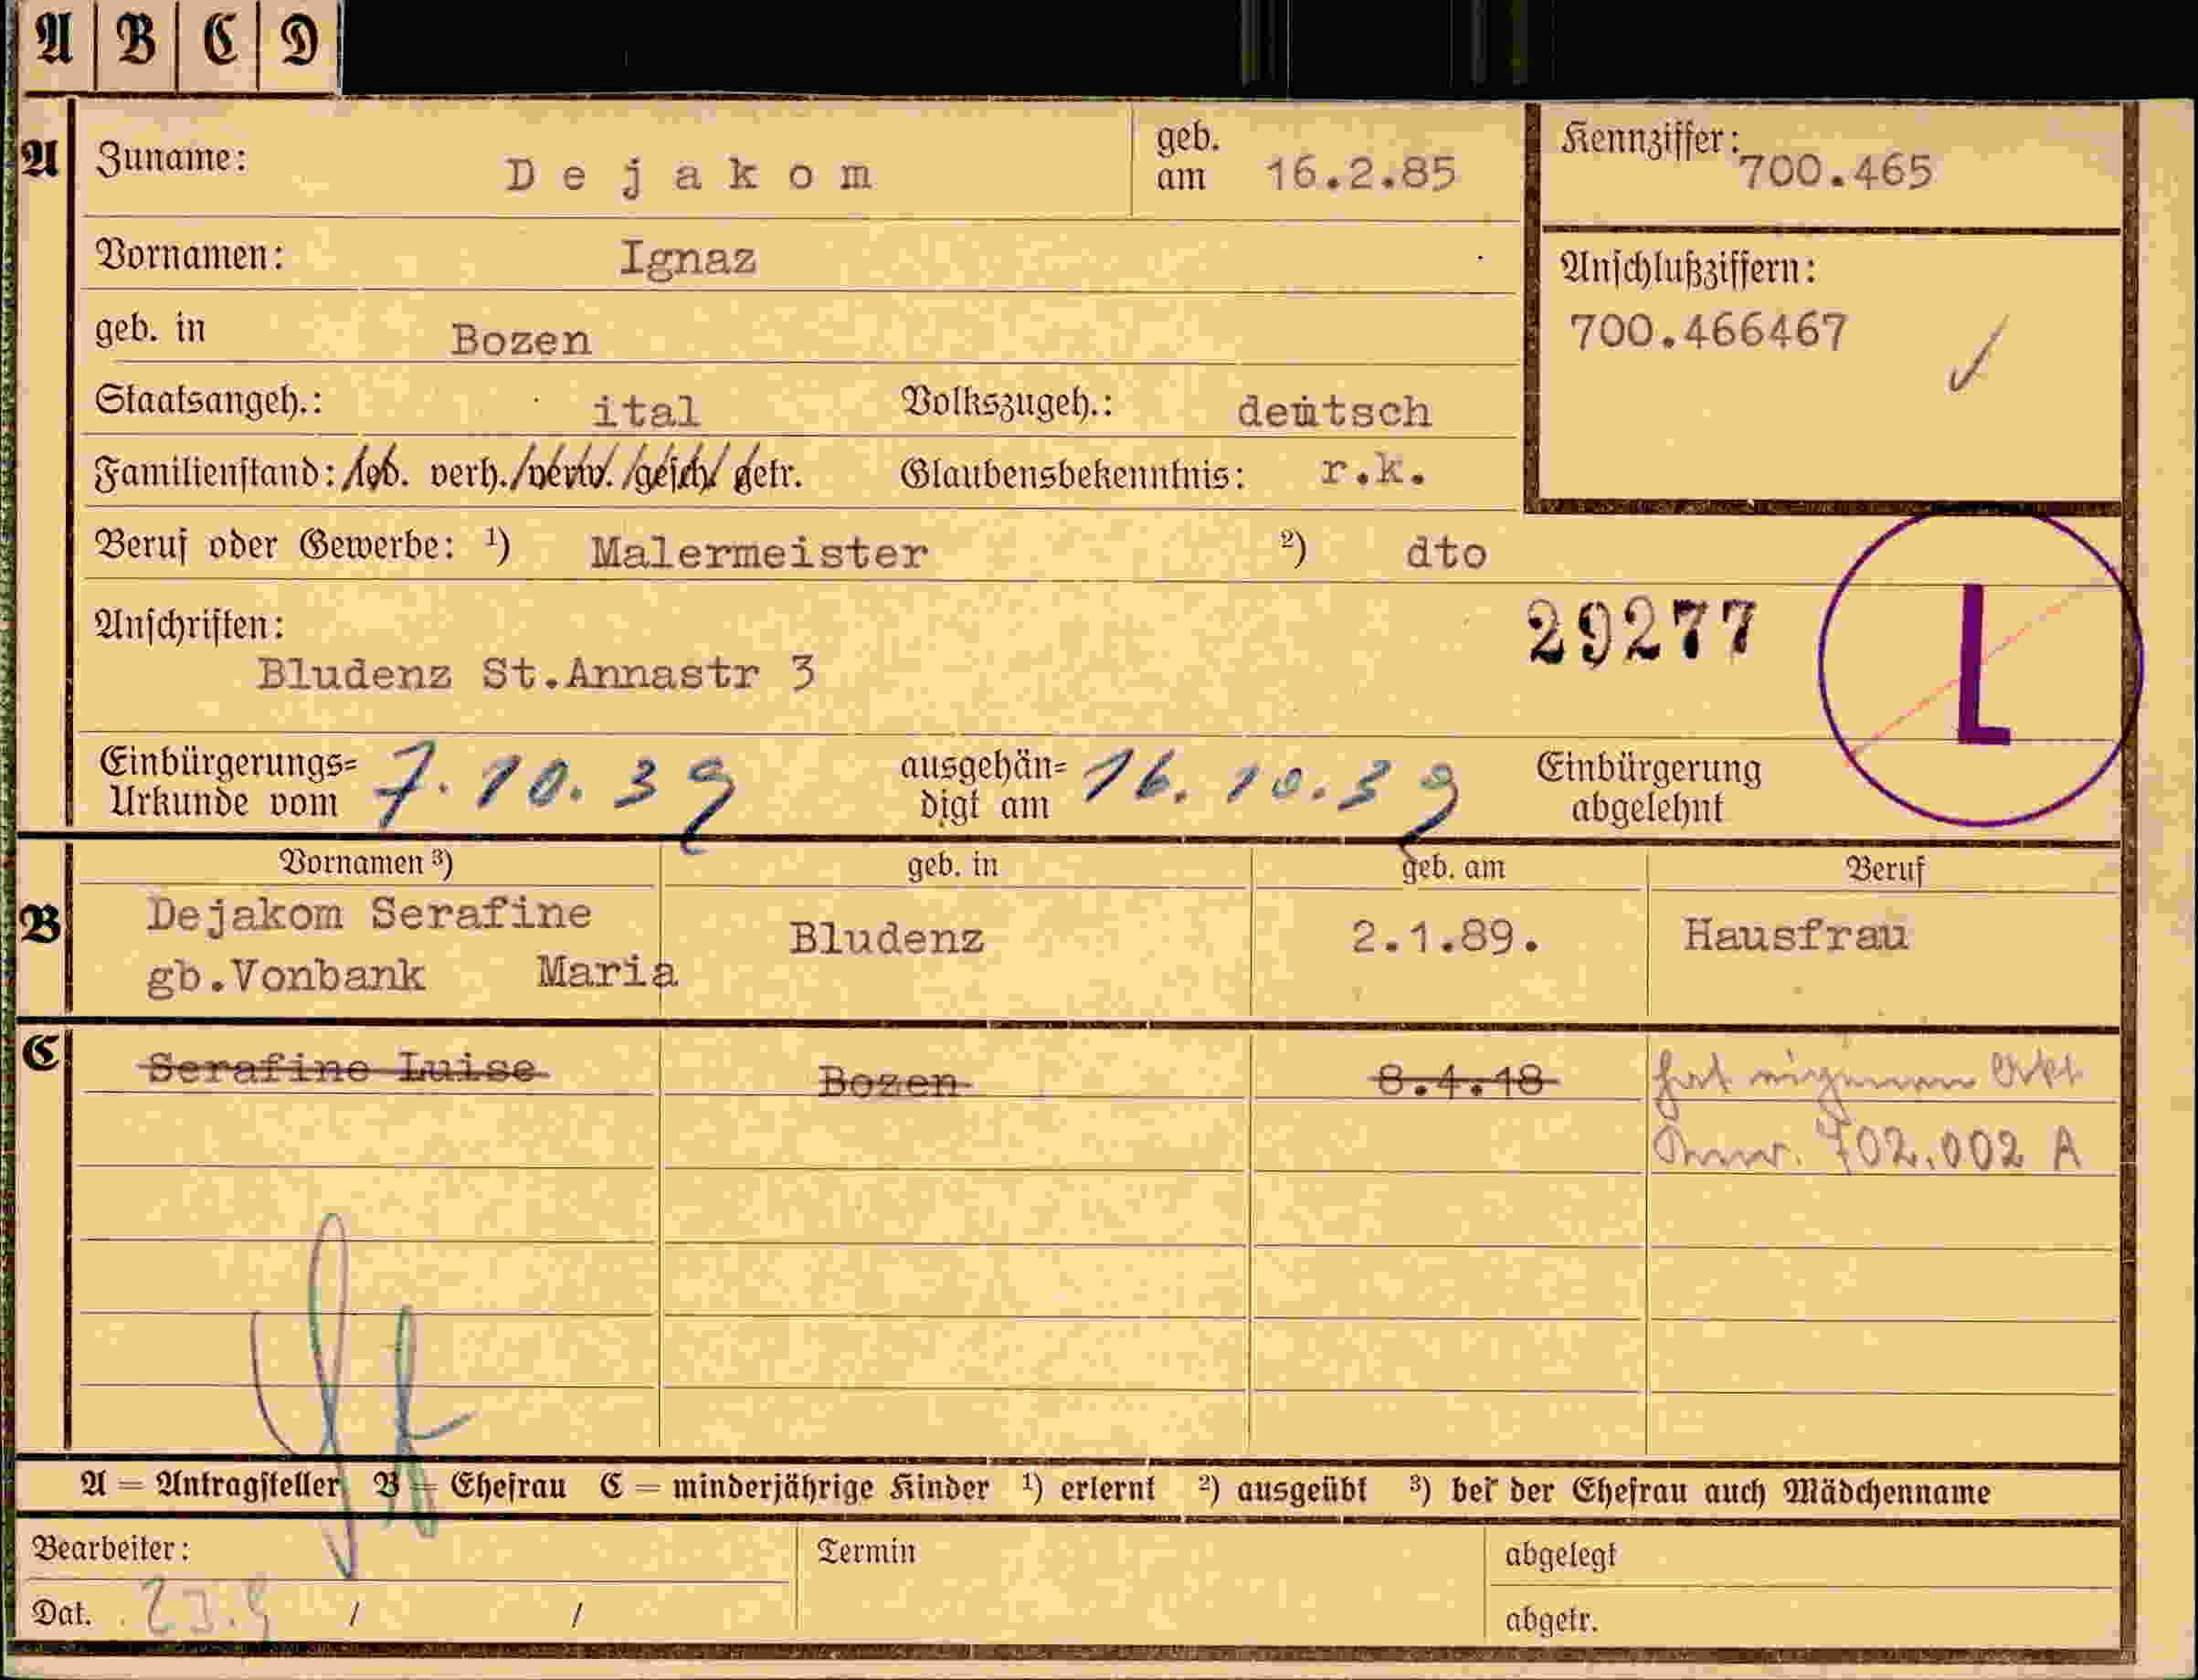 A B C D
A Zuname: Dejakom geb. am 16.2.85 Kennziffer: 700.465
Vornamen: Ignaz
Anschlußziffern:
700.466467
geb. in Bozen
Staatsangeh.: ital Volkszugeh.: deutsch
Familienstand: led. verh./verw./gesch/ getr. Glaubensbekenntnis: r.k.
Beruf oder Gewerbe: 1) Malermeister 2) dto
Anschriften:
29277
L
Bludenz St.Annastr 3
Einbürgerungs= Urkunde vom 7.10.39 ausgehän= digt am 16.10.39 Einbürgerung abgelehnt
Vornamen 3) geb. in geb. am Beruf
B Dejakom Serafine Bludenz 2.1.89. Hausfrau
gb.Vonbank Maria
C Serafine Luise Bozen 8.4.18 hat eigenen Akt
702.002 A
A = Antragsteller B = Ehefrau C = minderjährige Kinder 1) erlernt 2) ausgeübt 3) bei der Ehefrau auch Mädchenname
Bearbeiter: Termin abgelegt
Dat. 23.9 / / abgetr.